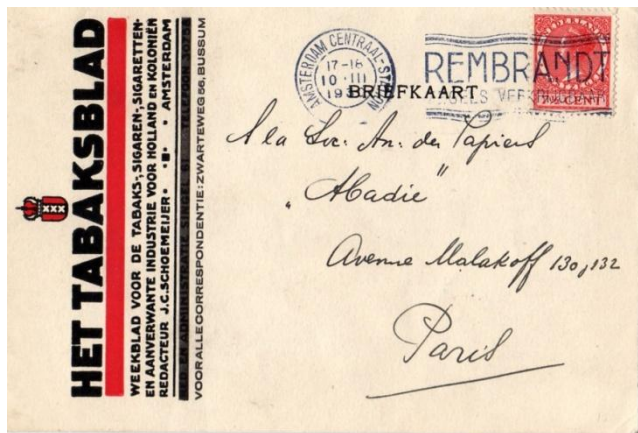 HET TABAKSBLAD
WEEKBLAD VOOR DE TABAKS-, SIGAREN-, SIGARETTEN-
EN AANVERWANTE INDUSTRIE VOOR HOLLAND EN KOLONIËN
REDACTEUR J.C. SCHOEMEIJER • AMSTERDAM
RED. EN ADMINISTRATIE SINGEL TELEFOON
VOOR ALLE CORRESPONDENTIE: ZWARTEWEG 56, BUSSUM
XXX
AMSTERDAM CENTRAAL-STATION
17-18
10 III
REMBRANDT
NEDERLAND
CENT
BRIEFKAART
A la Soc. An. des Papiers
„Abadie"
Avenue Malakoff 130, 132
Paris